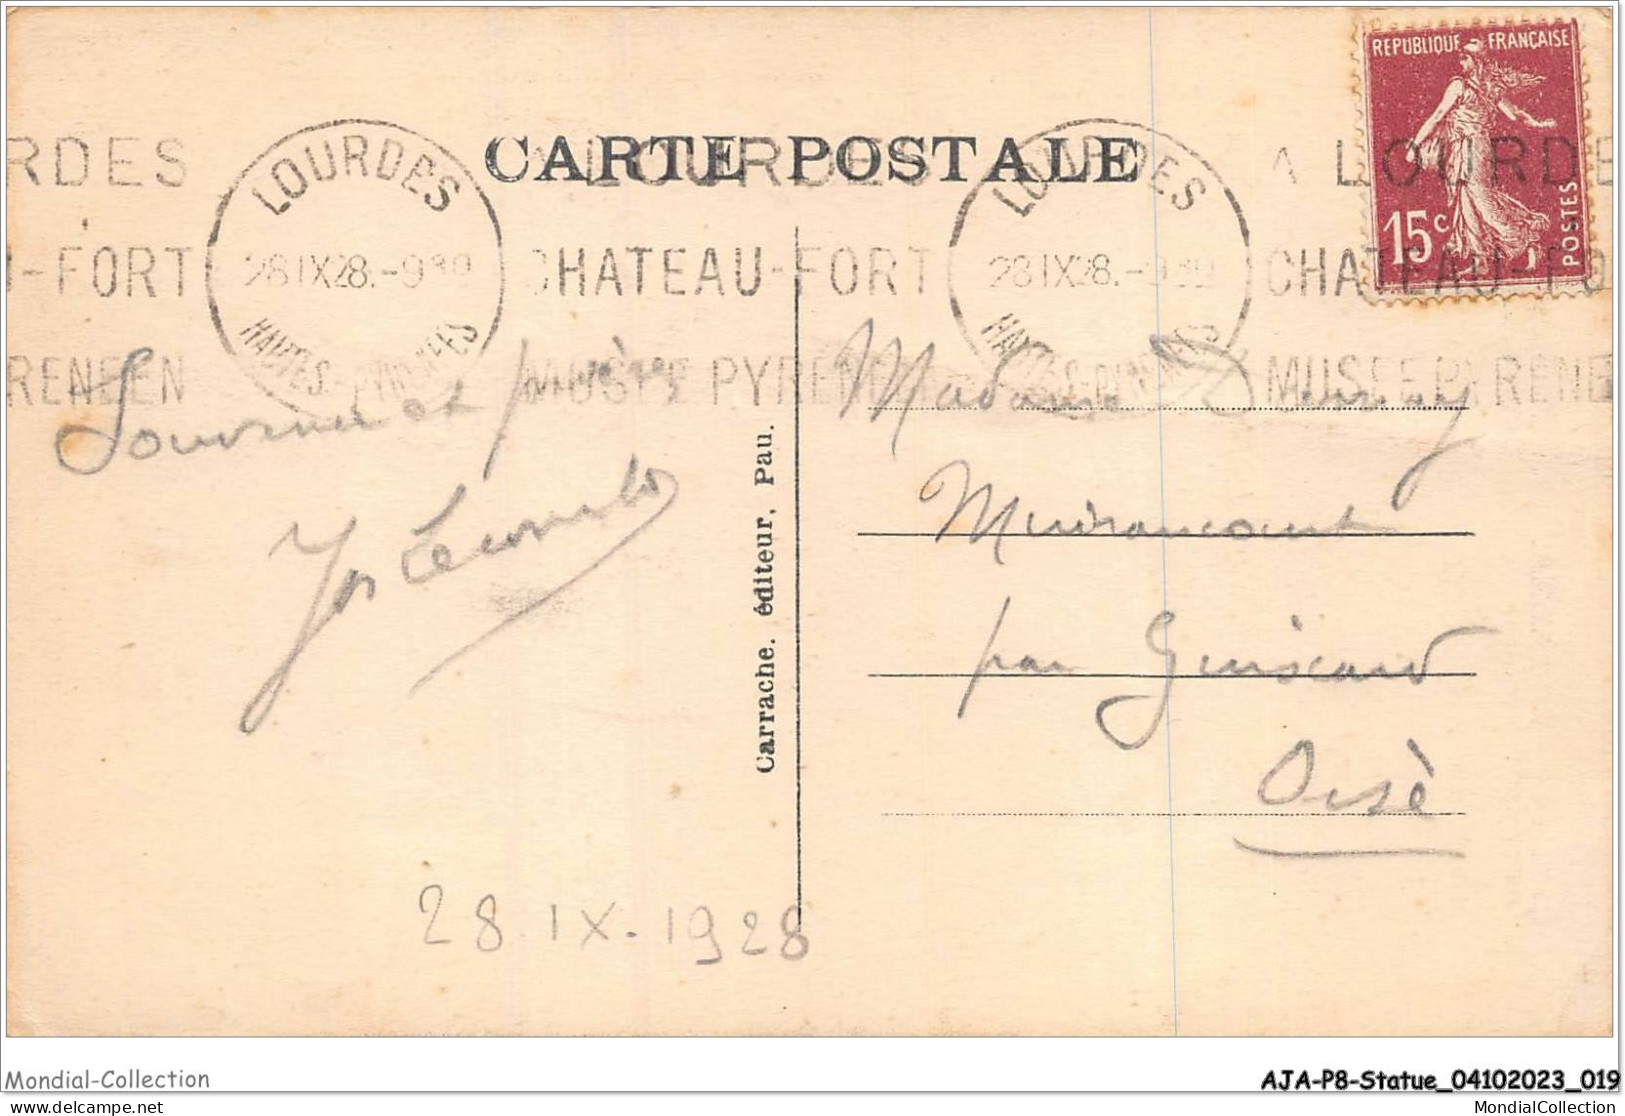 CARTE POSTALE
REPUBLIQUE FRANÇAISE
15c
POSTES
RDES
LOURDES
28 IX 28. - 9 30
HAUTES-PYRENEES
A LOURDES
CHATEAU-FORT
MUSEE PYRENEEN
LOURDES
28 IX 28. - 9 30
HAUTES-PYRENEES
A LOURDE
CHATEAU-FO
MUSEE PYRENE
-FORT
RENEEN
Souvenir et prières
Lecomte
Madame
Muirancourt
par Guiscard
Oisè
28.IX.1928
Carrache. éditeur, Pau.
Mondial-Collection
AJA-P8-Statue_04102023_019
MondialCollection